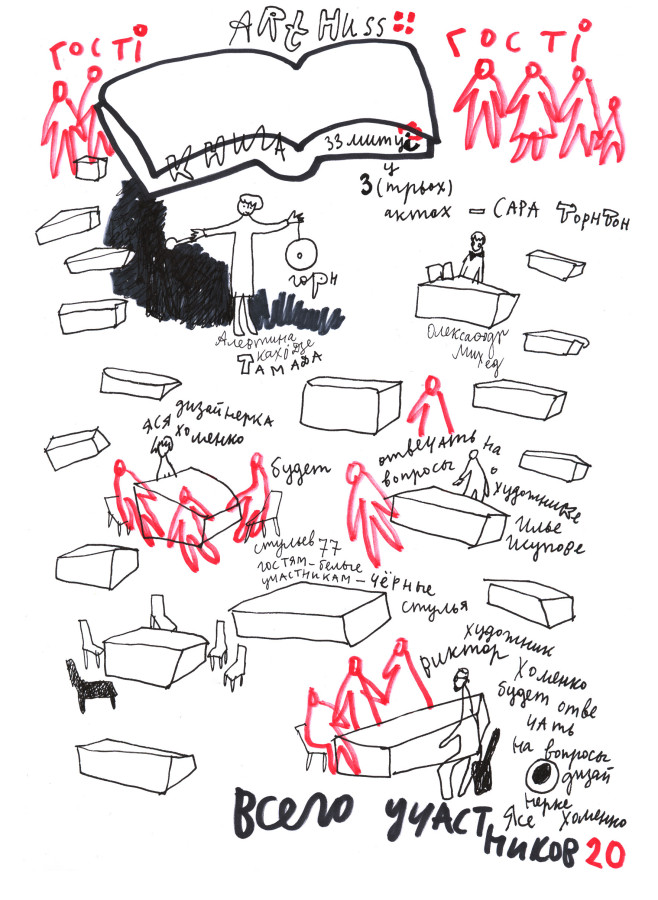 ARt Huss
гості
гості
книга
33 митці
у
3 (трьох)
актах – САРА ТОРНТОН
горн
Алевтина
кахідзе
ТАМАДА
Олександр
Михед
дизайнерка
яся хоменко
будет
отвечать на
вопросы
художнице
Илье
Исупове
стульев 77
гостям – белые
участникам – чёрные
стулья
художник
виктор Хоменко
будет отве
чать
на вопросы
дизай
нерке
Ясе Хоменко
всего участ
ников 20